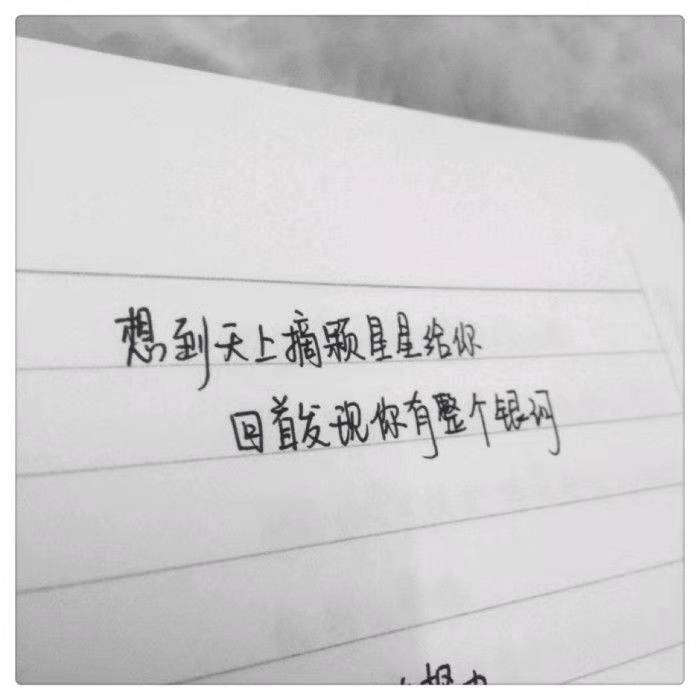 想到天上摘颗星星给你
回首发现你有整个银河